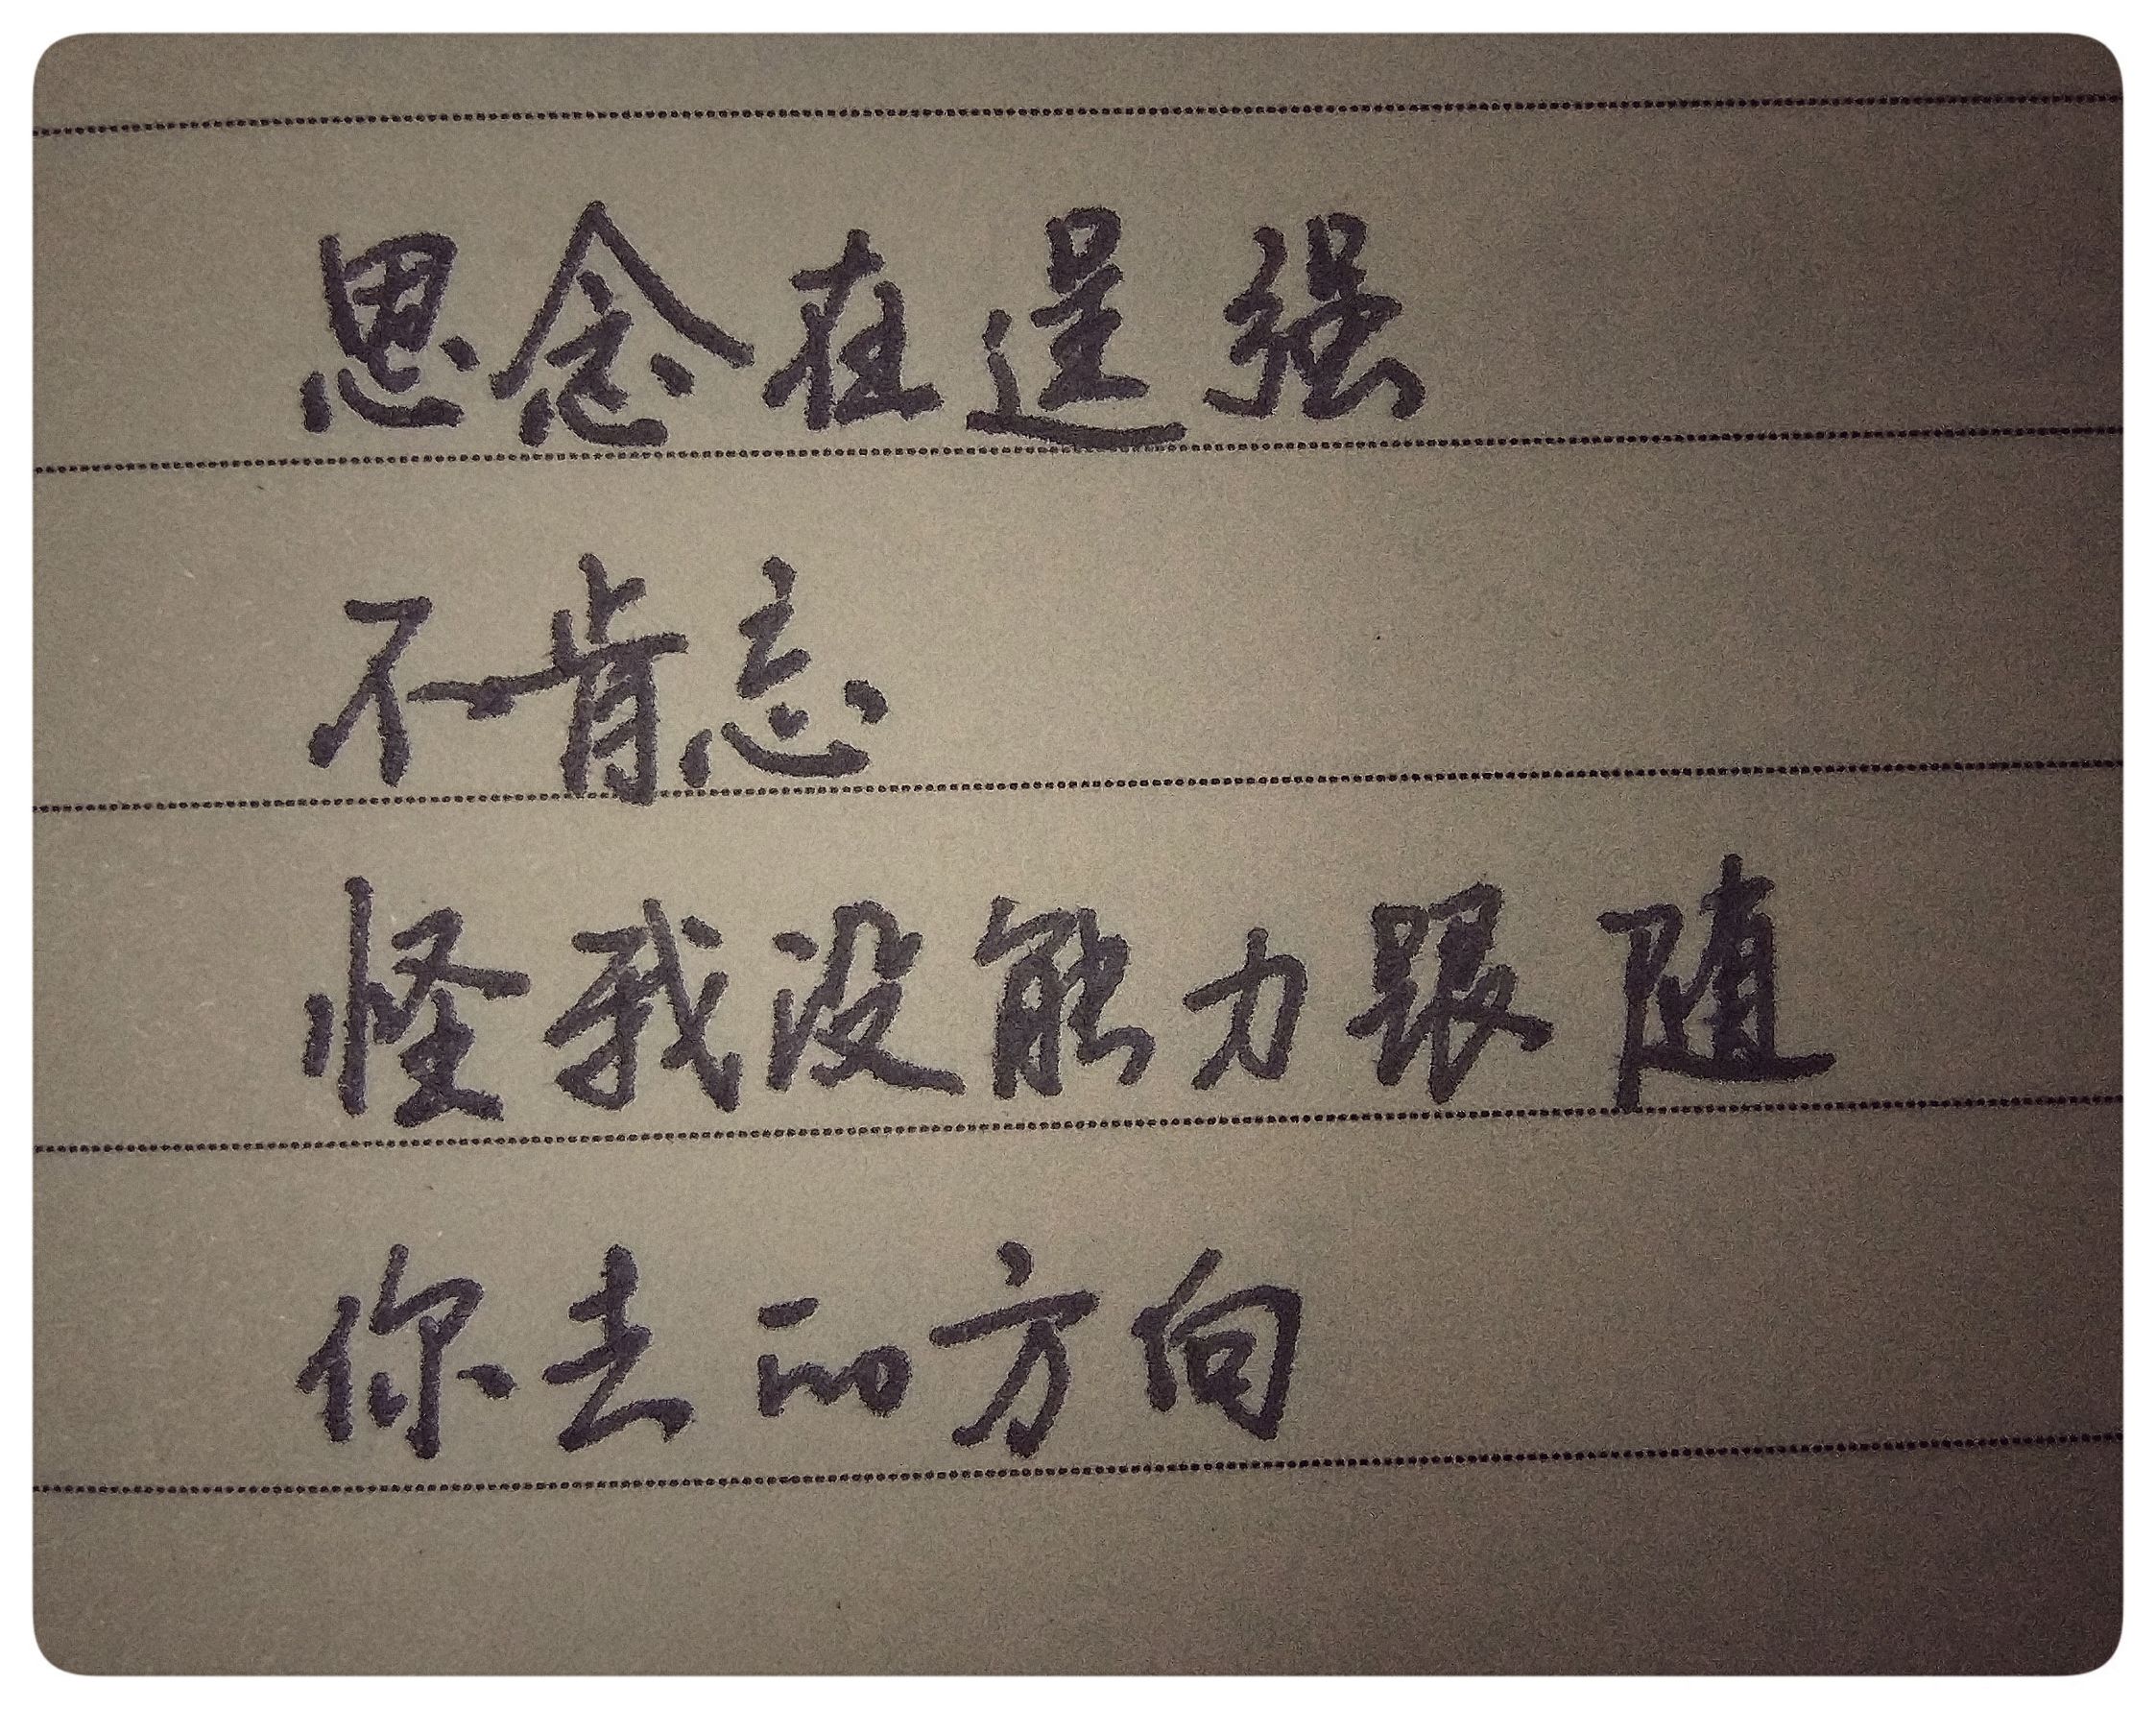 思念在逞强
不肯忘
怪我没能力跟随
你去的方向